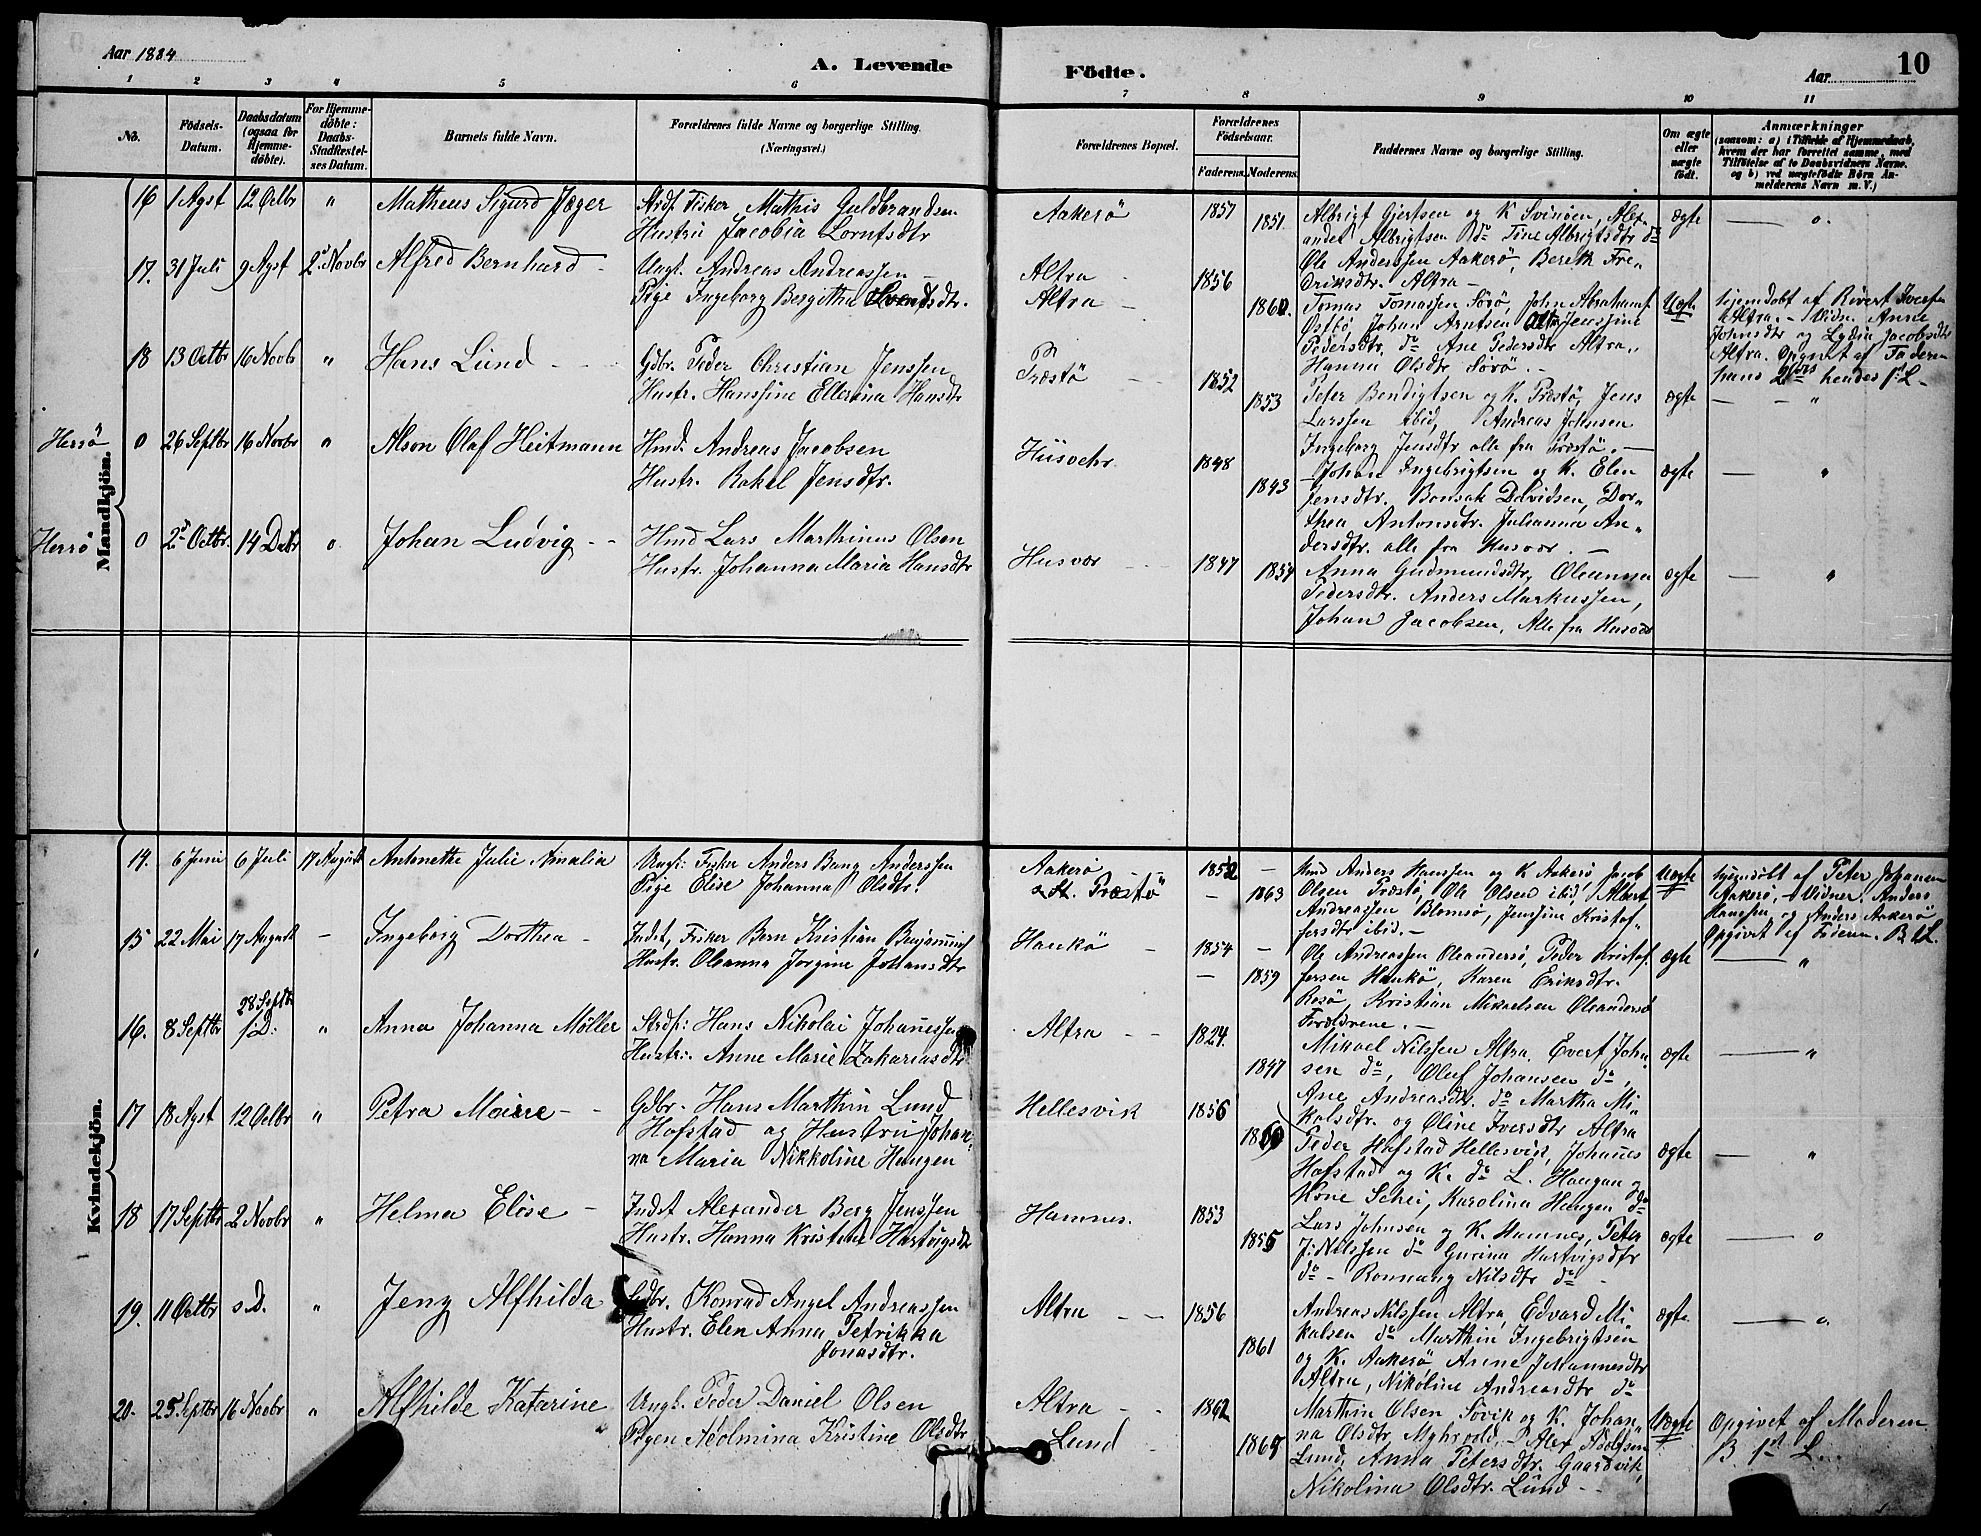 Aar 1884
A. Levende Födte.
Aar
10
1 2 3 4 5 6 7 8 9 10 11
No.
Födsels-Datum.
Daabsdatum (ogsaa for Hjemme-döbte).
For Hjemme-döbte: Daabs-Stadfæstel-ses Datum.
Barnets fulde Navn.
Forældrenes fulde Navne og borgerlige Stilling.
(Næringsvei.)
Forældrenes Bopæl.
Forældrenes Födselsaar.
Faderens. Moderens.
Faddernes Navne og borgerlige Stilling.
Om ægte eller uægte födt.
Anmærkninger
(saasom: a) i Tilfælde af Hjemmedaab, hvem der har forrettet samme, med Tilföielse af to Daabsvidners Navne. og b) ved uægtefödte Börn An-melderens Navn m. V.)
Mandkjön.
16 1 Agst 12 Octbr " Matheus Sigurd Jæger
Strdf. Fisker Mathis Guldbrandsen
Hustru Jacobia Lorntsdtr
Aakerö 1857 1851.
Albrigt Gjertsen og K Svinöen, Alex-
ander Albrigtsen do Tine Albrigtsdtr do
Ole Anderssen Aakerö, Bereth Fre-
driksdtr. Altra -
ægte
17. 31 Juli 9 Agst 2 Novbr Alfred Bernhard
Ungk. Andreas Andreassen
Pige Ingeborg Bergitha Svendsdtr.
Altra
Altra
1856 1860.
Tomas Tomassen Sörö, John Abrahamf
Östbö, Johan Arntsen Altra Jenssine
Pedersdtr. do Ane Pedersdtr Altra,
Hanna Olsdtr Sörö. -
Uægte
hjemdöbt af Sivert Iversen
Altra. - Vidn. Anne
Johnsdtr og Lydia Jacobsdtr
Altra. Opgivet af Faderen
hans 2det hendes 1st L -
18 13 Octbr 16 Novbr " Hans Lund
Gdbr. Peder Christian Jenssen
Hustr. Hanssine Ellerina Hansdtr
Præstö 1852 1853
Peter Bendigtsen og K. Præstö, Jens
Larssen ibid, Andreas Johnsen
Ingeborg Jensdtr alle fra Præstö. -
ægte
Herrö 0 26 Septbr 16 Novbr " Alson Olaf Heitmann
Hmd. Andreas Jacobsen
Hustr. Rakel Jensdtr.
Husvær 1848 1843
Johan Ingebrigtsen og K. Elen
Jensdtr. Bonsak Davidsen, Dor-
thea Antonsdtr. Julianna An-
dersdtr. alle fra Husvær. -
ægte "
Herrö 0 2 Octbr. 14 Debr Johan Ludvig
Hmd Lars Marthinus Olsen
Hustr. Johanna Maria Hansdtr
Husvær 1847 1854
Anna Gudmundsdtr, Oleanna
Pedersdtr. Anders Markussen,
Johan Jacobsen, Alle fra Husvær
ægte "
Kvindekjön.
14. 6 Juni 6 Juli 17 August Antonette Julie Amalia
Ungk: Fisker Anders Bang Anderssen
Pige Elise Johanna Olsdtr.
Aakerö
Præstö
1852 1863
Hmd Anders Hanssen og K Aakerö Jacob
Olsen Præstö, Ole Olsen ibid, Albert
Andreassen Blomsö, Jenssine Kristof-
fersdtr ibid. -
Uægte
hjemdöbt af Peter Johansen
Aakerö, Vidner. Anders
Hanssen og Anders Aakerö
Opgivet af Faderen. B 1st L.
15 22 Mai 17 August - Ingeborg Dorthea -
Indst. Fisker Bern Kristian Benjaminsf
Hustr. Oleanna Jorgine Johansdtr
Haukö 1854 1859
Ole Andreassen Oleandersö, Peder Kristof-
fersen Haukö, Karen Eriksdtr.
Rosö, Kristian Mikaelsen Oleandersö
Forældrene. -
ægte "
16. 8 Septbr 28 Septbr s D: " Anna Johanna Möller
Strdf: Hans Nikolai Johanessen
Hustr: Anne Marie Zakariasdtr
Altra 1824. 1847
Mikael Nilssen Altra. Evert John-
sen do, Oluf Johansen do,
Ane Andreasdtr. do Martha Mi-
kalsdtr. og Oline Iversdtr Altra
ægte "
17 18 Agst 12 Octbr " Petra Moirre -
Gdbr. Hans Marthin Lund
Hofstad og Hustru Johan-
na Maria Nikkoline Haugen
Hellesvik 1856
Peder Hofstad Hellesvik, Johanes
Hofstad og K. do L. Haugan og
Kone Schei, Karolina Haugen do
ægte "
18 17 Septbr 2 Novbr " Helma Elise -
Indst Alexander Berg Jenssen
Hustr. Hanna Kristine Hartvigsdtr
Hamnes. 1853 1855
Lars Johnsen og K. Hamnes, Peter
J. Nilssen do Gurina Hartvigsdtr
do - Ronnaug Nilsdtr do
ægte
19. 11 Octbr s.D. " Jeny Alfhilda
Gdbr. Konrad Angel Andreassen
Hustr. Elen Anna Petrikka
Jonasdtr.
Altra 1856 1861
Andreas Nilssen Altra, Edvard Mi-
kalsen do Marthin Ingebrigtsen
og K. Aakerö Anne Johannesdtr
Altra, Nikoline Andreasdtr do
ægte
20. 25 Septbr 16 Novbr " Alfhilde Katarine
Ungk. Peder Daniel Olsen
Pigen Kristine Olsdtr
Altra
Lund
1862 1865
Marthin Olsen Sövik og K. Johan-
na Olsdtr. Myhrvold, Alex Adolfsen
Lund, Anna Petersdtr. Gaardvik,
Nikolina Olsdtr. Lund -
Uægte
Opgivet af Moderen
B 1st L.